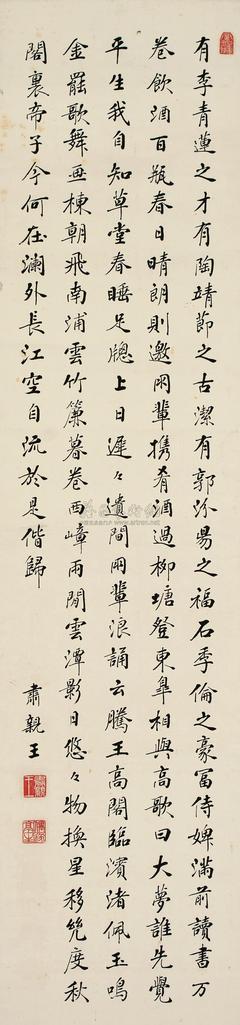 有李青蓮之才有陶靖節之古潔有郭汾昜之福石季倫之豪冨侍婢滿前讀書万
卷飲酒百瓶春日晴朗則邀朋輩携肴酒過柳塘登東臯相與高歌曰大夢誰先覺
平生我自知草堂春睡足牕上日遲々遺間朋輩浪誦云騰王高閣臨濱渚佩玉鳴
金罷歌舞画棟朝飛南浦雲竹簾暮卷西嶂雨閒雲潭影日悠々物換星移幾度秋
閣裏帝子今何在瀾外長江空自流於是偕歸
肅親王